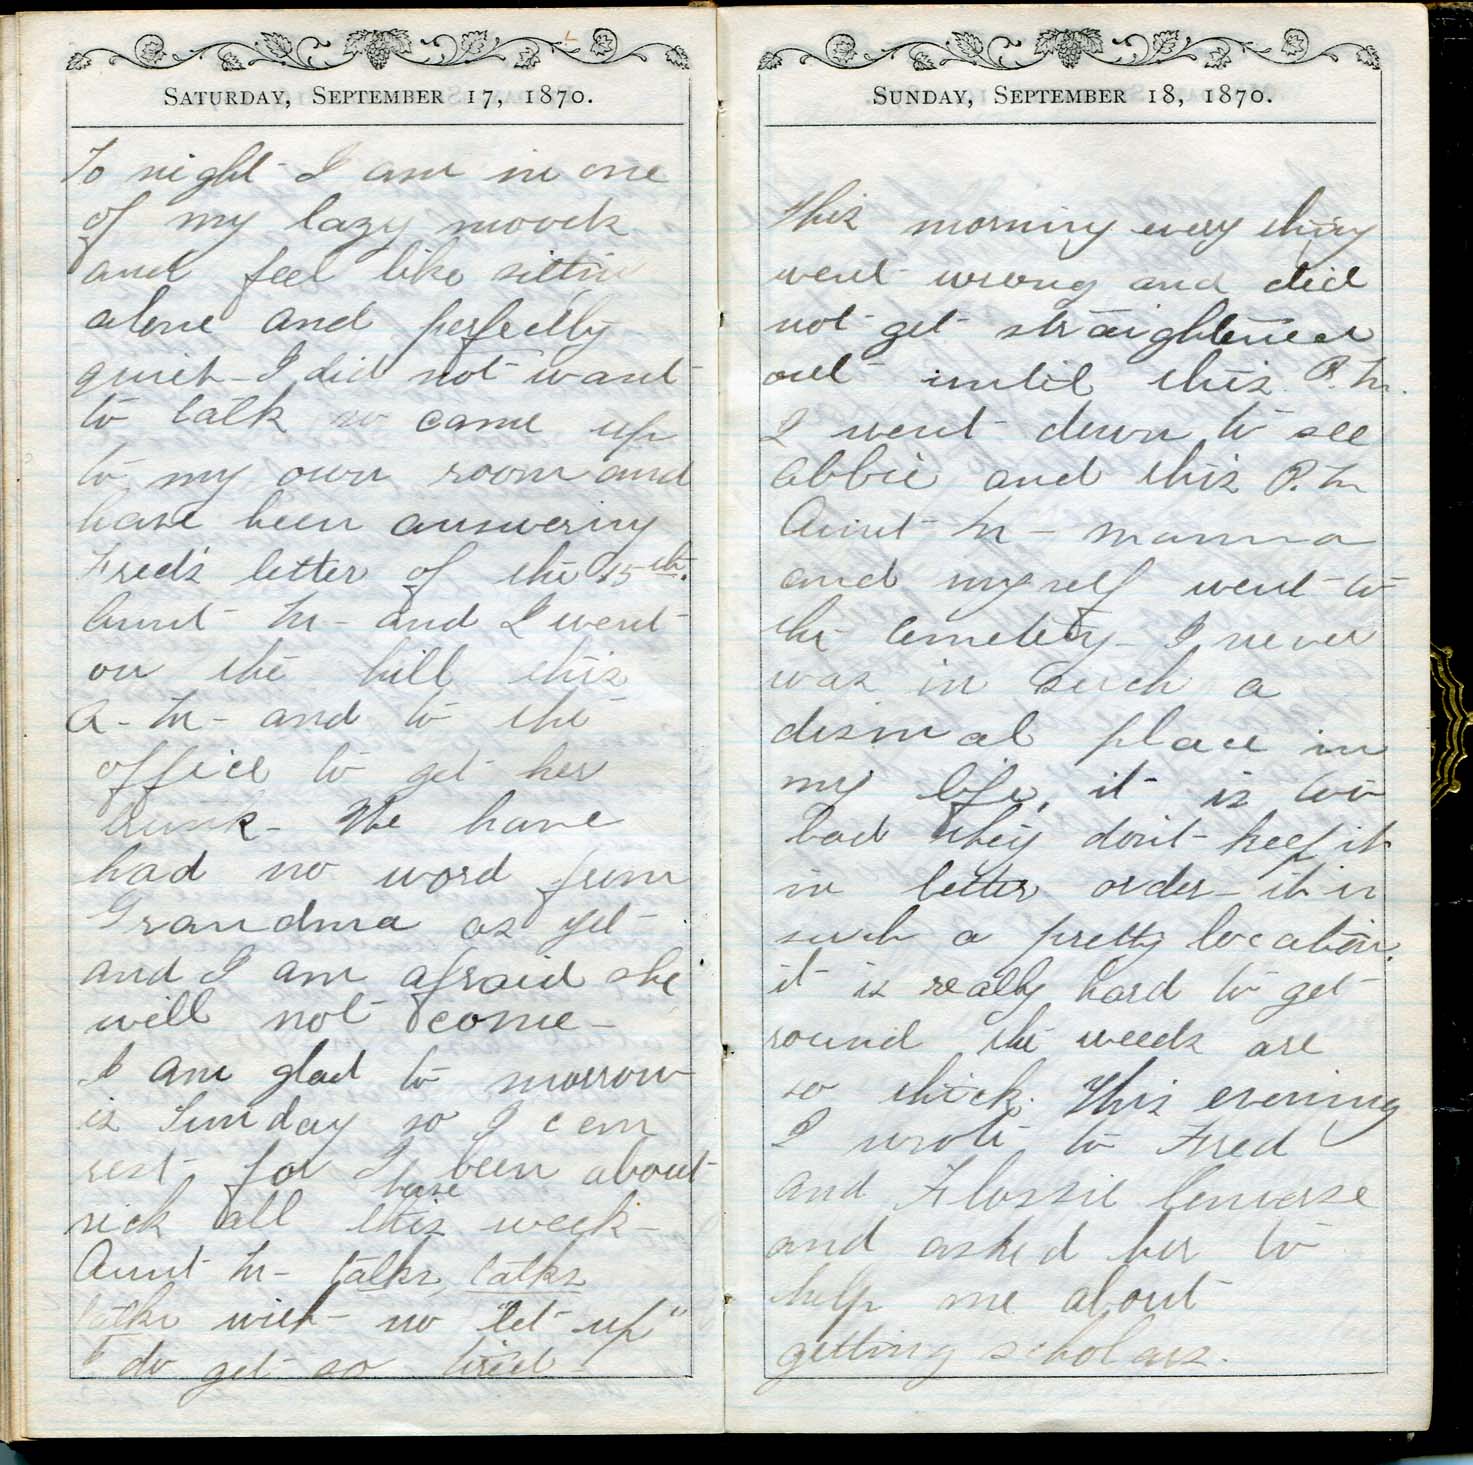 SATURDAY, SEPTEMBER 17, 1870.
To night I am in one
of my lazy moods
and feel like sittin
alone and perfectly
quiet - I did not want
to talk so came up
to my own room and
have been answering
Fred's letter of the 15th.
Aunt M - and I went
on the hill this
A - M - and to the
office to get her
trunk - We have
had no word from
Grandma as yet -
and I am afraid she
will not come -
I am glad to morrow
is Sunday so I can
rest for I been about
have
sick all this week -
Aunt M - talks, talks
talks with no "let up"
I do get so tired -
SUNDAY, SEPTEMBER 18, 1870.
This morning every thing
went wrong and did
not get straightened
out until this P.M.
I went down to see
Abbie and this P.M
Aunt M - Mamma
and myself went to
the Cemetery - I never
was in such a
dismal place in
my life, it is too
bad they don't keep it
in better order - it is
such a pretty location.
it is really hard to get
round the weeds are
so thick. This evening
I wrote to Fred
and Flossie Converse
and asked her to
help me about
getting scholars.